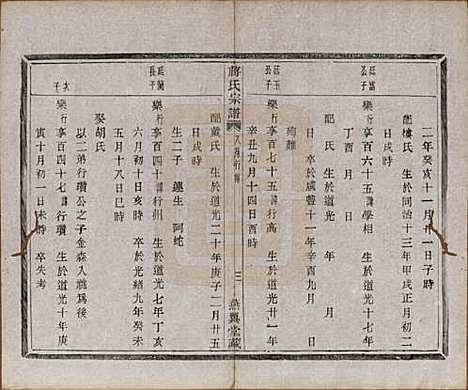 二年癸亥十一月廿一日子時
配樓氏 生於同治十三年甲戌正月初二
日戌時
廷富公子
樂行享百六十五諱行學相 生於道光十七年
丁酉月 日 時
配 氏 生於道光 年 月 日
時 卒於咸豐十一年辛酉九月
殉難
廷玉公子
樂行享百七十五諱行高 生於道光廿一年
辛丑九月十四日酉時
蔣氏宗譜
卷八
行傳
三
燕翼堂藏
配戴氏 生於道光二十年庚子二月廿五
日戌時
生二子 連生 阿蛇
廷蘭長子
樂行享百四十諱行州 生於道光七年丁亥
六月初十日亥時 卒於光緒九年癸未
五月十八日巳時
娶胡氏
以二弟行瓚公之子金森入繼爲後
次子
樂行享百四十七諱行瓚 生於道光十年庚
寅十月初一日戌時 卒失考